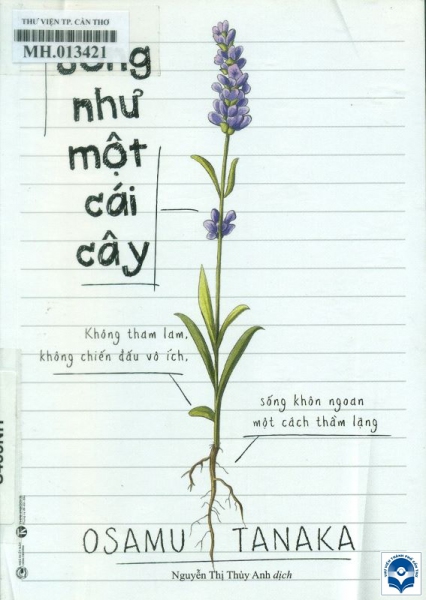 THƯ VIỆN TP. CẦN THƠ
MH.013421
như
một
cái
cây
Không tham lam,
không chiến đấu vô ích,
sống khôn ngoan
một cách thầm lặng
OSAMU TANAKA
Nguyễn Thị Thùy Anh dịch